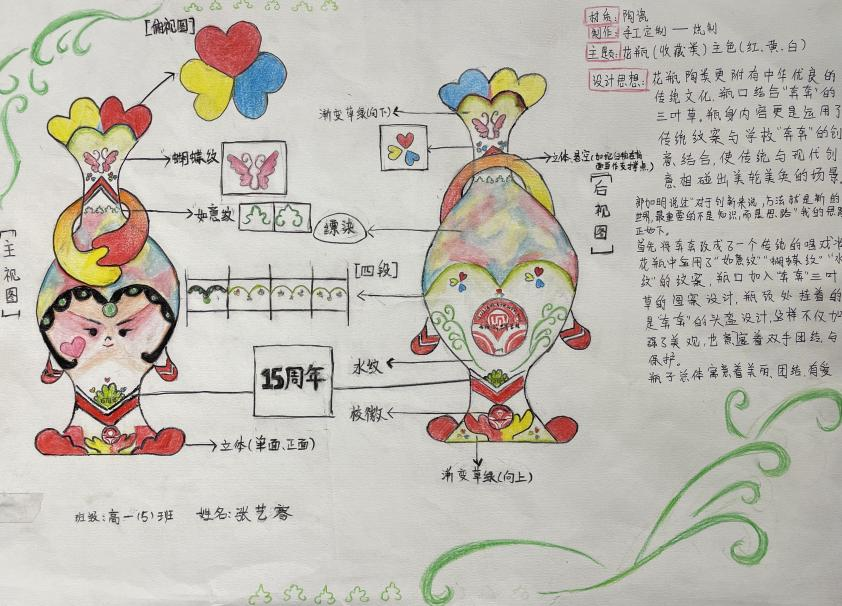 [俯视图]
蝴蝶纹
如意纹
[主视图]
立体(单面、正面)
班级:高一(5)班 姓名:张艺
渐变草绿(向下)
立体悬空
漂染
[四段]
15周年
水纹
校徽
渐变草绿(向上)
[后视图]
材质:陶瓷
制作:手工定制——烧制
主题:花瓶(收藏类)主色(红、黄、白)
设计思想:花瓶陶瓷更附有中华优良的
传统文化,瓶口结合"卉卉"的
三叶草。瓶身内容更是运用了
传统纹案与学校"卉卉"的创
意,结合,使传统与现代创
意相碰出美轮美奂的场景。
郭加明说过"对于创新来说,方法就是新的
世界,最重要的不是知识,而是思路"我的思路
正如下。
首先将卉卉改成了一个传统的唱戏
花瓶中运用了"如意纹""蝴蝶纹""水
纹"的纹案,瓶口加入"卉卉"三叶
草的图案设计,瓶颈处挂着的
是"卉卉"的头盔设计,这样不仅加
强了美观,也寓意着双手团结与
保护。
瓶子总体寓意着美丽、团结、有爱